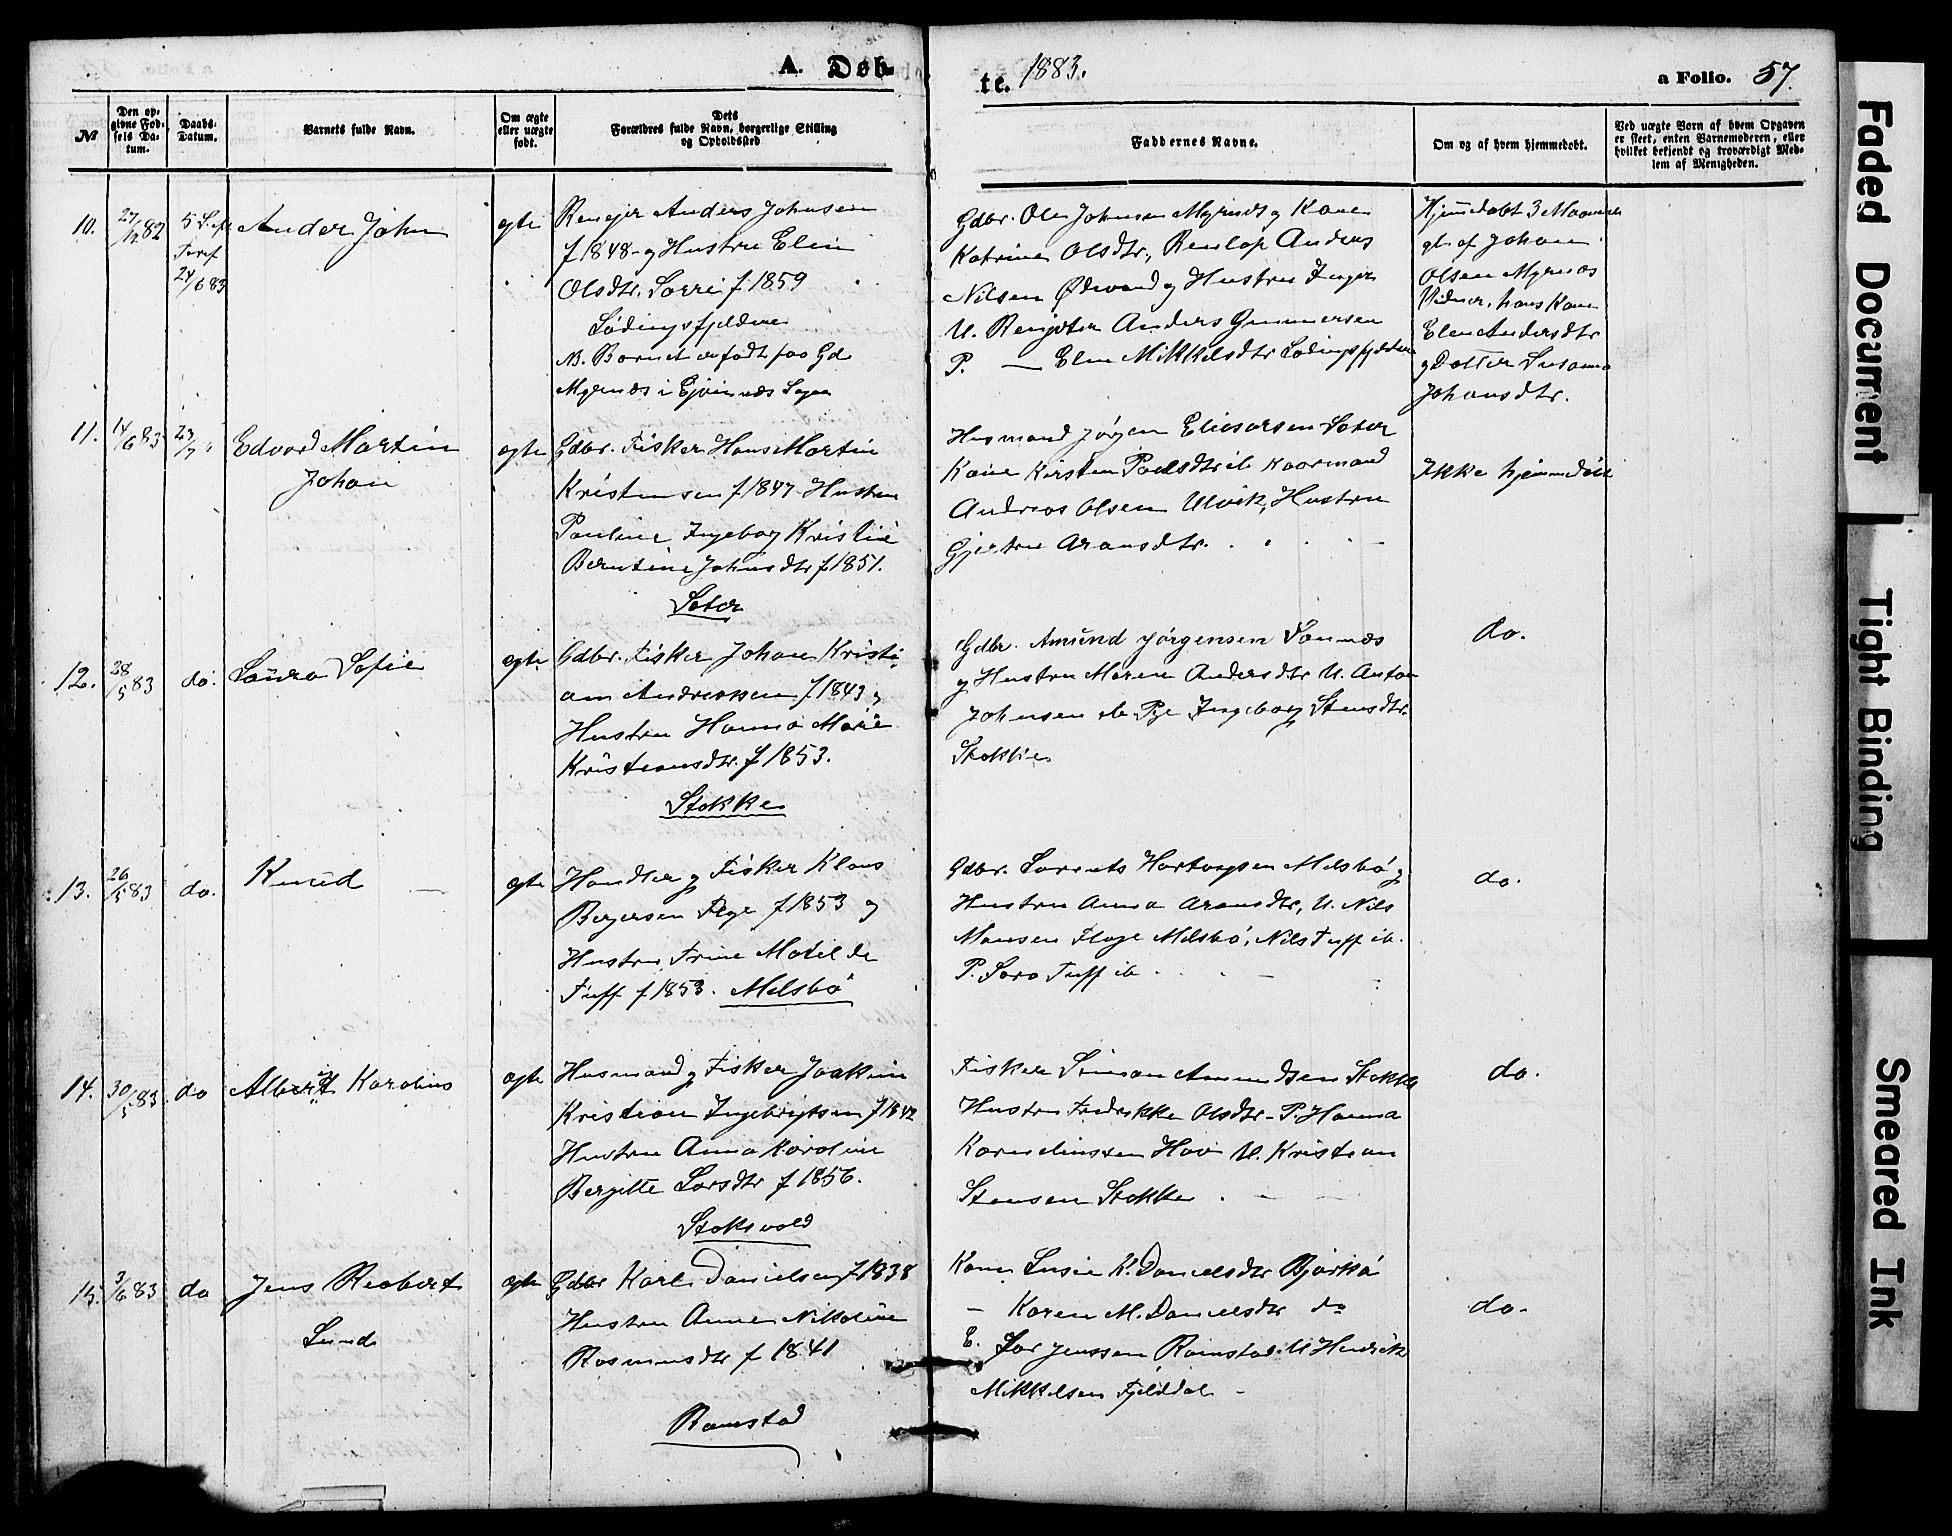 A. Døb-
te. 1883.
a Folio. 57.
№
Den op-
givne Fød-
sels Da-
tum.
Daabs-
Datum.
Barnets fulde Navn.
Om ægte
eller uægte
født.
Dets
Forældres fulde Navn, borgerlige Stilling
og Opholdssted
Faddernes Navne.
Om og af hvem hjemmedøbt.
Ved uægte Børn af hvem Opgaven
er skeet, enten Barnemoderen, eller
hvilket bekjendt og troværdigt Med-
lem af Menigheden.
10.
27/12 82
5 S. ep
24/6 83
Ander John
ægte
Anders Johnsen
f 1848 - og Hustru Elin
Olsdtr. f 1859
Lødingsfjeldene
NB. Barnet er født paa Gd
Myrnæs i Sogn
Gdbr. Ole Johnsen Myrnæs og Kone
Katrine Olsdtr., Anders
Nilsen og Hustru Inger
U. Anders Gunnersen
P. — Elen Mikkelsdtr Lødingsfjeldene
Hjemmedøbt 3 Maaneder
gl. af Johan
Olsen Myrnæs
Vidner, hans Kone
Elen Andersdtr
og Datter Susanna
Johansdtr.
11.
14/6 83
23/7 "
Edvard Martin
Johan
ægte
Gdbr. Fisker Hans Martin
Kristensen f 1847 - Hustru
Pauline Ingeborg Kristine
Berntine Johnsdtr f 1851.
Sæter
Husmand Jørgen Eliesersen Sæter
Kone Kirsten Paulsdtr ib
Andreas Olsen Ulvik, Hustru
Gjertru Aronsdtr.
Ikke hjemmedøbt
12.
28/5 83
do.
Laura Sofie
ægte
Gdbr. Fisker Johan Kristi-
an Andreassen f 1843 og
Hustru Hanna Marie
Kristiansdtr. f 1853.
Stokke
Gdbr. Amund Jørgensen Sannæs
og Hustru Maren Andersdtr U. Anton
Johnsen ib Pige Ingeborg Stensdtr.
Stokke
do.
13.
26/5 83
do.
Knud
ægte
Handler og Fisker Klaus
Bergersen f 1853 og
Hustru Trine Matilde
Tuff f 1853. Melsbø
Gdbr. Lorents Hartvigsen Melsbø og
Hustru Anna Aronsdtr, U. Nils
Monsen Melsbø, Nils Tuff ib.
P. Sara Tuff ib
do.
14.
30/5 83
do
Albert Karolius
ægte
Husmand og Fisker Joakim
Kristian Ingebrigtsen f 1842
Hustru Anna Karoline
Bergitte Larsdtr f 1856.
Stoksvold
Fisker Simon Amundsen Stokke
Hustru Fredrikke Olsdtr - P. Hanna
Kornelinssen Hov U. Kristian
Stensen Stokke
do.
15.
3/6 83
do
Jens Reobert
Lund
ægte
Gdbr Karl Danielsen f 1838
Hustru Anne Nikoline
Rasmusdtr f 1841
Ramstad
Kone Susie K. Danielsdtr Bjørkø
— Karen M. Danielsdtr do
E. Jenssen Ramstad U Hendrik
Mikkelsen Fjelddal -
do.
Faded Document
Tight Binding
Smeared Ink